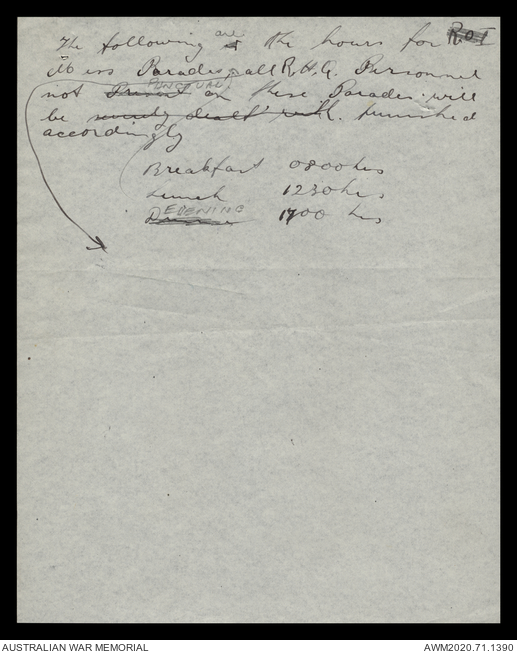 The following are is the hours for R.O.I
Mess Parades, all R.H.Q. Personnel
not Present PUNCTUAL on these Parades will
be severly dealt with. punished
accordingly
Breakfast 0800 hrs
Lunch 1230 hrs
EDENING 1700 hrs
AUSTRALIAN WAR MEMORIAL
AWM2020.71.1390